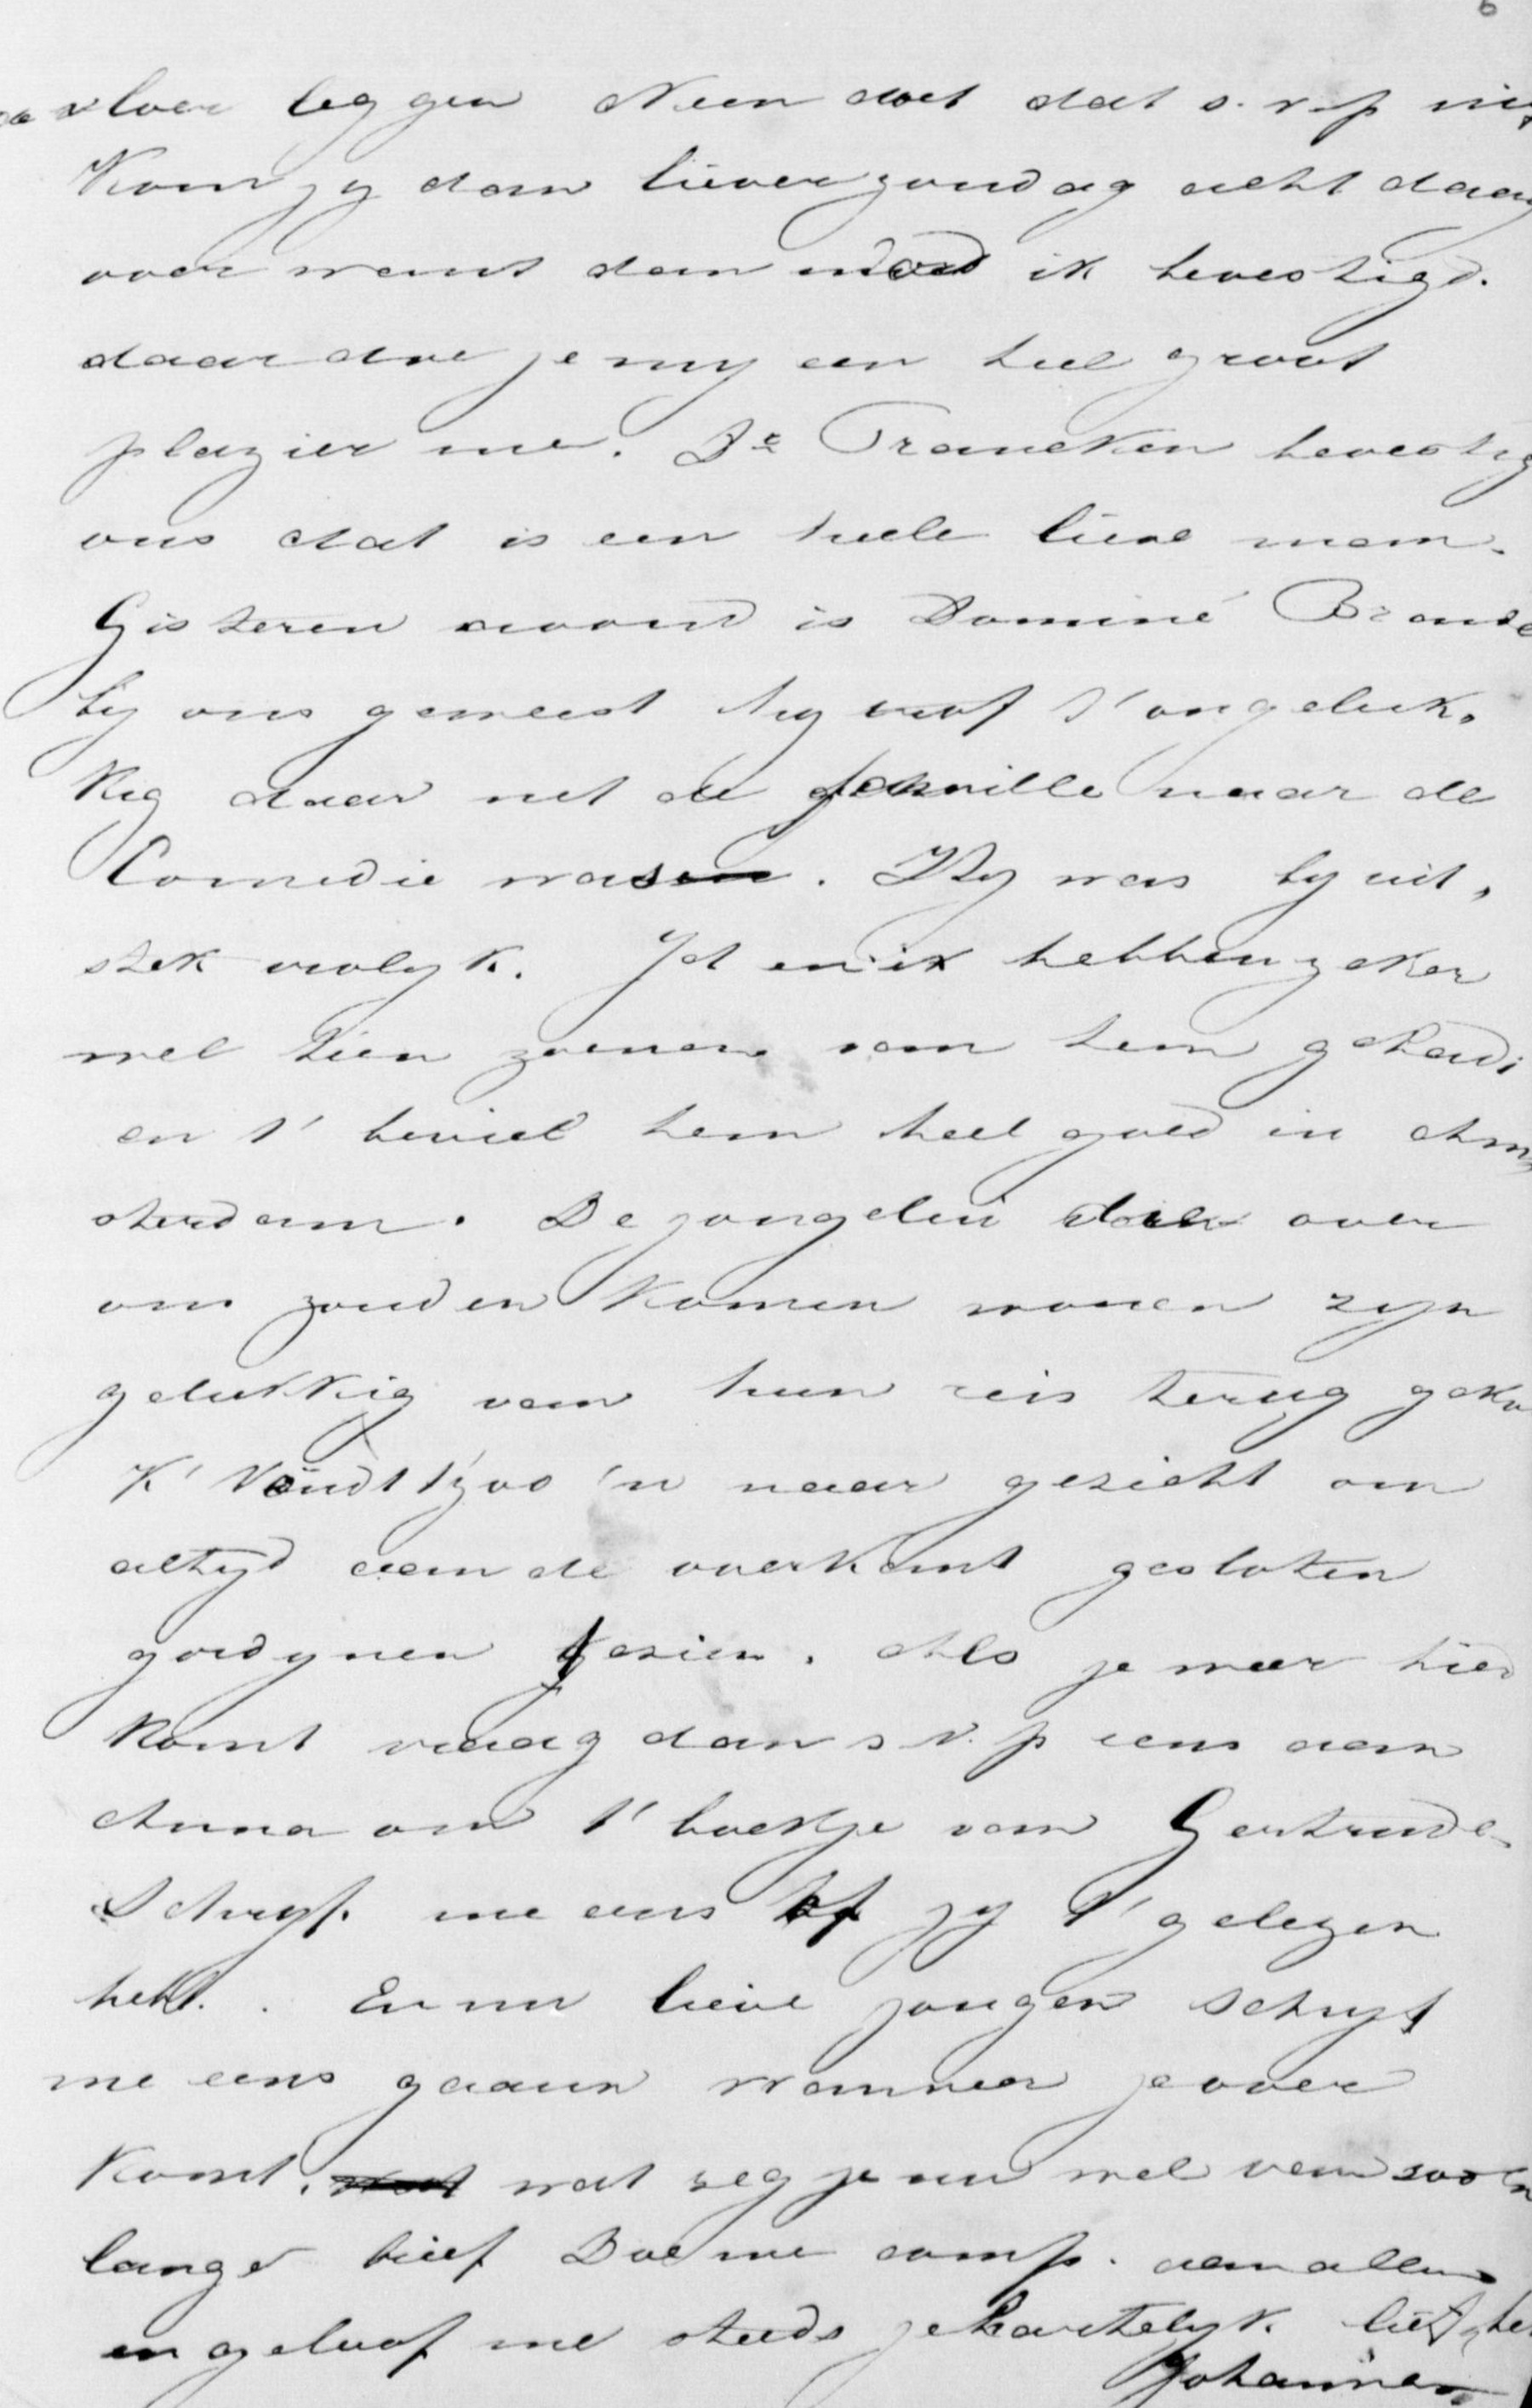 6
vloer leggen Neen doet dat s.v.p niet
Kom jy dan liever zondag acht daag
over want dan word ik bevestigd.
daar doe je my een heel groot
plazier me. Dr Francken bevestig
ons dat is een heele lieve man.
Gisteren avond is Dominé Brande
by ons geweest hy trof t' ongeluk-
kig daar net de familie naar de
Comedie was. Hy was by uit-
stek vrolyk. Jet en ik hebben zeker
wel tien zoenen van hem gehad;
en t' beviel hem heel goed in Am
sterdam. De jongelui die over
ons zouden komen wonen zyn
gelukkig van hun reis terug geko
K' Vondt t' zoo 'n naar gezicht om
altyd aan de overkant gesloten
gordynen te zien. Als je weer hier
komt vraag dan s.v.p eens aan
Anna om t' boekje van Gertrude
Schryf me eens of jy t' gelezen
hebt. En nu lieve jongen schryf
me eens gaauw wanneer je over
komt. wat zeg je nu wel van zoo'n
lange brief Doe me comp. aan allen
en geloof me steeds je hartelyk liefhe
Johanna